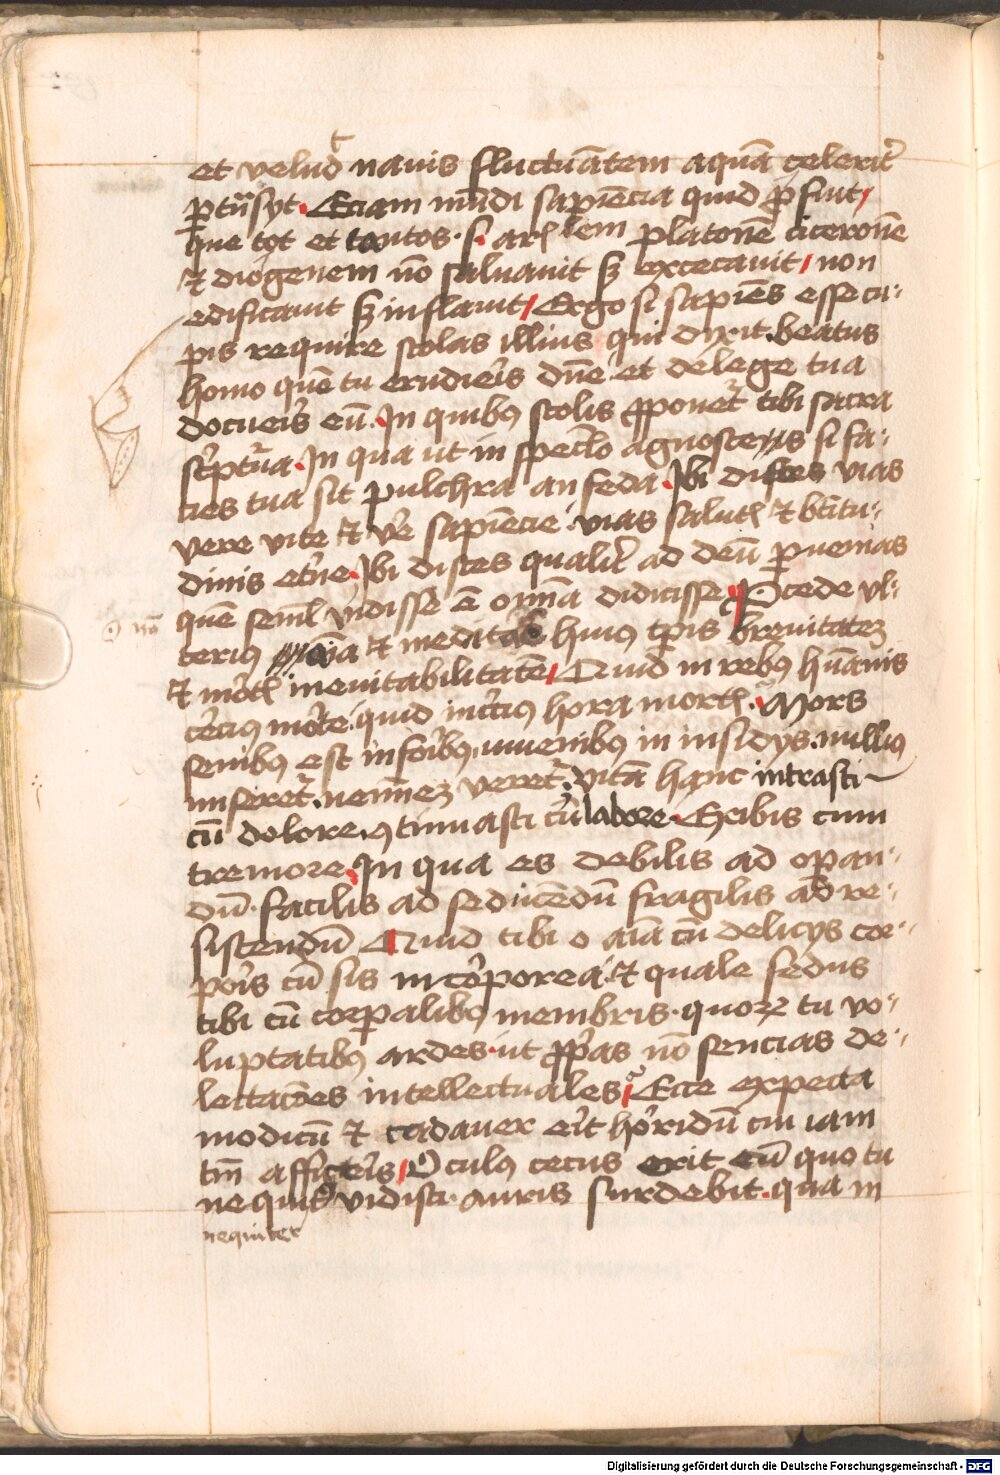 et velud nauis fluctuātem aquā celerit̄
ꝑtn̄syt. Eciam mūdi sapiēcia quid ꝓfuit/
que tot et tantos. s. arꝭlem platonē ciceronē
et diogenem nō saluauit sꝫ excecauit/ non
edificauit sꝫ inflauit/ Ergo si sapiēs esse cu-
pis require scolas illius qui dyxit. beatus
homo quē tu erudieris dn̄e et de lege tua
docueris eū. In quibꝰ scolis ꝓponet̄ tibi sacra
sc̄ptura. In qua ut in speclo agnosces si fa-
cies tua sit pulchra an feda. Ibi disces vias
vere vite et v̄e sapiēcie vias salutꝭ et btitu-
dinis et̄ne. Ibi disces qualit̄ ad deū ꝑuenias
quē seml̄ vidisse ē omīa didicisse Pcede vl-
terius et medita huiꝰ tp̄is breuitatem
et mortꝭ ineuitabilitatē/ Quid in rebꝰ hūanis
c̄ciꝰ morte. quid inc̄ciꝰ hora mortꝭ. Mors
senibꝰ est in foribꝰ. iuuenibꝰ in insidijs. nulliꝰ
miseret̄. neminem veret̄. vitā hanc intrasti
cū dolore. ꝯtinuasti cū labore. Exibis cum
tremore. In qua es debilis ad opan-
dū. facilis ad seducēdū fragilis ad re-
sistendū Quid tibi o aīa cū delicijs cor-
poris cū sis incorporea. et quale fedus
tibi cū corꝑalibꝰ membris. quoꝝ tu vo-
luptatibꝰ ardes. ut ꝓprias nō sencias de-
lectacōes intellectuales/ Ecce expecta
modicū et cadauer erit horridū cui iam
tm̄ afficeris/ Oculꝰ cecus erit cū quo tu
nequid vidisti. auris surdebit. qua in
nequiter
Digitalisierung gefördert durch die Deutsche Forschungsgemeinschaft - DFG